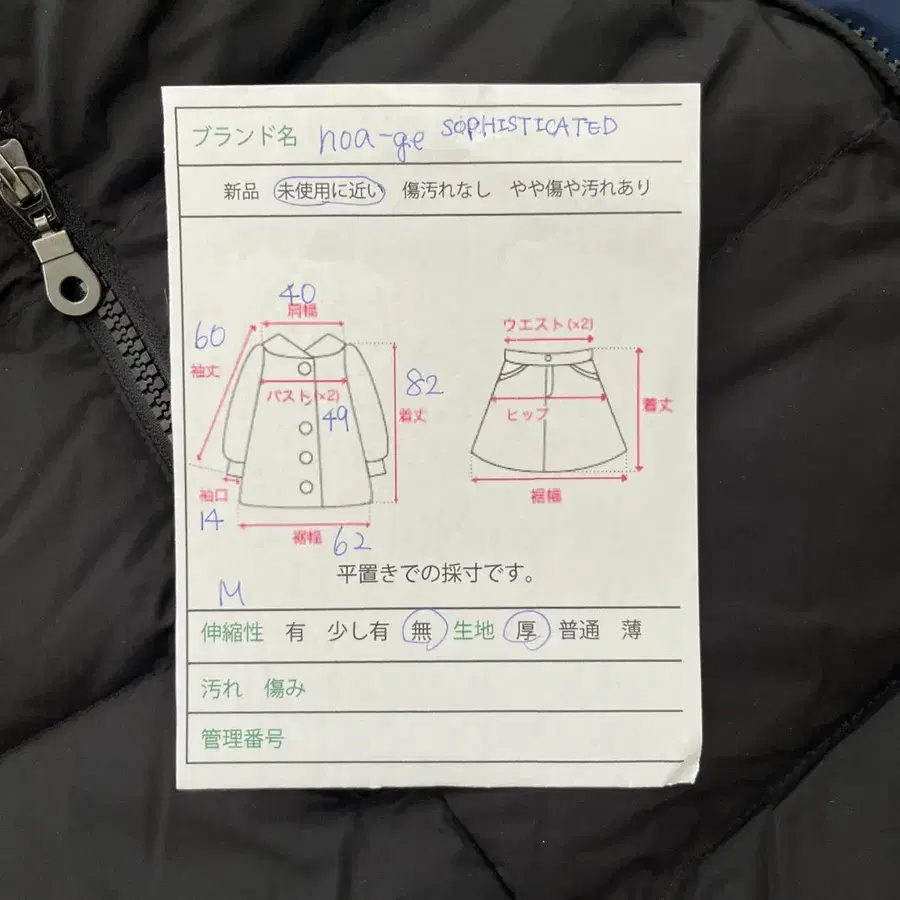 ブランド名 noa-ge SOPHISTICATED
新品 未使用に近い 傷汚れなし やや傷や汚れあり
40
肩幅
60
袖丈
バスト(×2)
49
82
着丈
袖口
14
裾幅
62
ウエスト(×2)
ヒップ
着丈
裾幅
平置きでの採寸です。
M
伸縮性 有 少し有 無 生地 厚 普通 薄
汚れ 傷み
管理番号